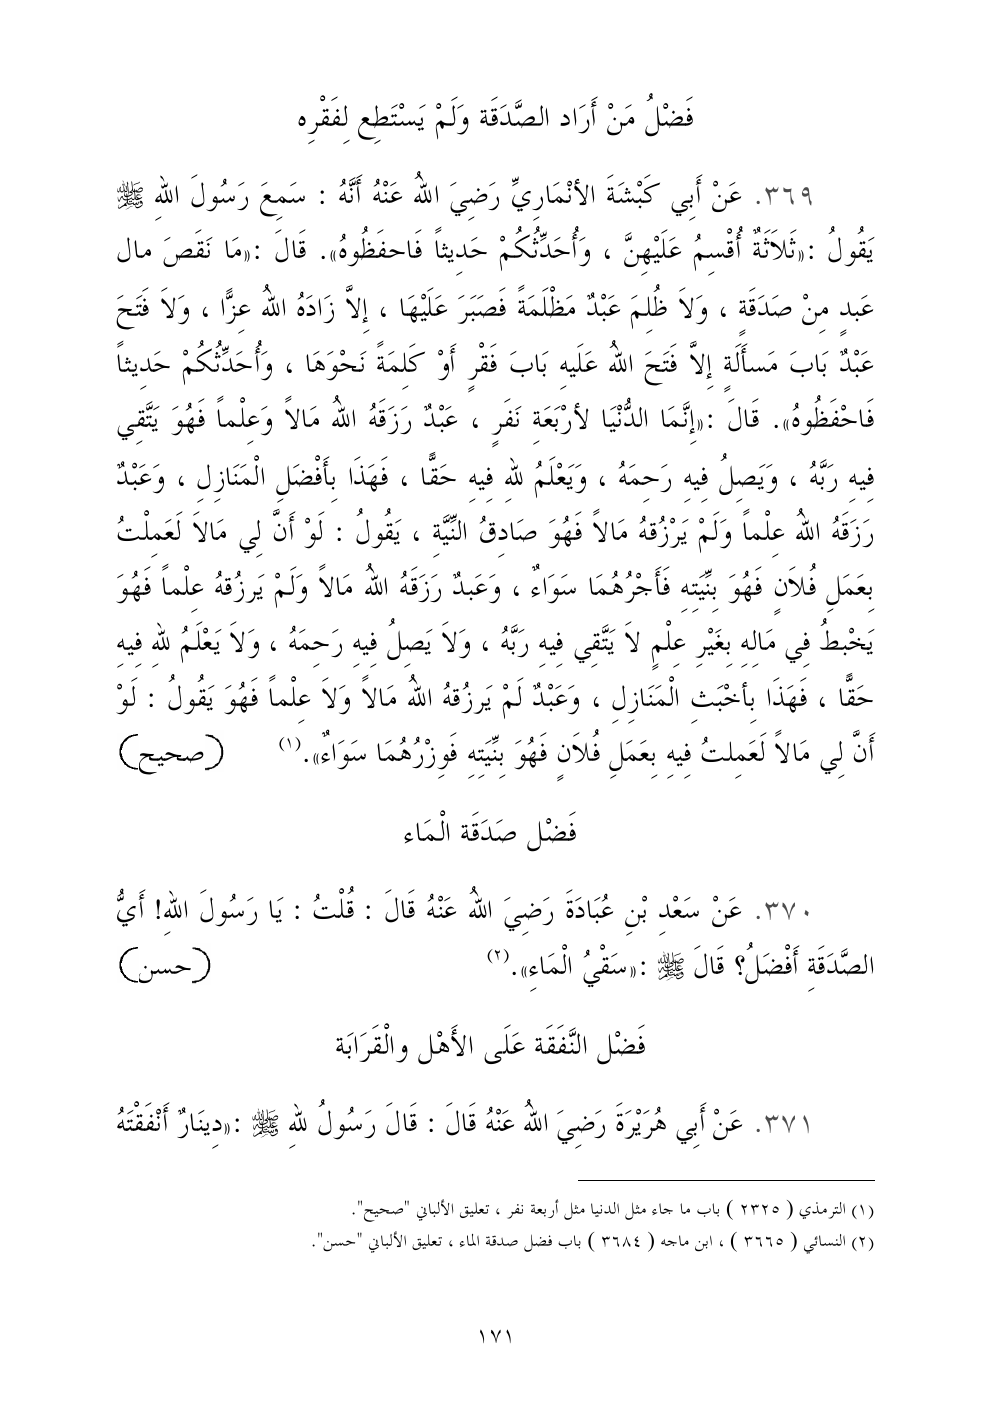 فَضْلُ مَنْ أَرَاد الصَّدَقَة وَلَمْ يَسْتَطِع لِفَقْرِه
٣٦٩. عَنْ أَبِي كَبْشَةَ الأنْمَارِيِّ رَضِيَ اللهُ عَنْهُ أَنَّهُ : سَمِعَ رَسُولَ اللهِ ﷺ
يَقُولُ :«ثَلاَثَةٌ أُقْسِمُ عَلَيْهِنَّ ، وَأُحَدِّثُكُمْ حَدِيثاً فَاحفَظُوهُ». قَالَ :«مَا نَقَصَ مال
عَبدٍ مِنْ صَدَقَةٍ ، وَلاَ ظُلِمَ عَبْدٌ مَظْلَمَةً فَصَبَرَ عَلَيْهَا ، إلاَّ زَادَهُ اللهُ عِزًّا ، وَلاَ فَتَحَ
عَبْدٌ بَابَ مَسأَلَةٍ إلاَّ فَتَحَ اللهُ عَلَيهِ بَابَ فَقْرٍ أَوْ كَلِمَةً نَحْوَهَا ، وَأُحَدِّثُكُمْ حَدِيثاً
فَاحْفَظُوهُ». قَالَ :«إنَّمَا الدُّنْيَا لأرْبَعَةِ نَفَرٍ ، عَبْدٌ رَزَقَهُ اللهُ مَالاً وَعِلْماً فَهُوَ يَتَّقِي
فِيهِ رَبَّهُ ، وَيَصِلُ فِيهِ رَحِمَهُ ، وَيَعْلَمُ للهِ فِيهِ حَقًّا ، فَهَذَا بِأَفْضَلِ الْمَنَازِلِ ، وَعَبْدٌ
رَزَقَهُ اللهُ عِلْماً وَلَمْ يَرْزُقهُ مَالاً فَهُوَ صَادِقُ النِّيَّةِ ، يَقُولُ : لَوْ أَنَّ لِي مَالاَ لَعَمِلْتُ
بِعَمَلِ فُلاَنٍ فَهُوَ بِنِّيَتِهِ فَأَجْرُهُمَا سَوَاءٌ ، وَعَبدٌ رَزَقَهُ اللهُ مَالاً وَلَمْ يَرزُقهُ عِلْماً فَهُوَ
يَخْبطُ فِي مَالِهِ بِغَيْرِ عِلْمٍ لاَ يَتَّقِي فِيهِ رَبَّهُ ، وَلاَ يَصِلُ فِيهِ رَحِمَهُ ، وَلاَ يَعْلَمُ للهِ فِيهِ
حَقًّا ، فَهَذَا بأخْبَثِ الْمَنَازِلِ ، وَعَبْدٌ لَمْ يَرزُقهُ اللهُ مَالاً وَلاَ عِلْماً فَهُوَ يَقُولُ : لَوْ
أَنَّ لِي مَالاً لَعَمِلتُ فِيهِ بِعَمَلِ فُلاَنٍ فَهُوَ بِنِّيَتِهِ فَوِزْرُهُمَا سَوَاءٌ». (١) (صحيح)
فَضْل صَدَقَة الْمَاء
٣٧٠. عَنْ سَعْدِ بْنِ عُبَادَةَ رَضِيَ اللهُ عَنْهُ قَالَ : قُلْتُ : يَا رَسُولَ اللهِ! أَيُّ
الصَّدَقَةِ أَفْضَلُ؟ قَالَ ﷺ :«سَقْيُ الْمَاءِ». (٢) (حسن)
فَضْل النَّفَقَة عَلَى الأَهْل والْقَرَابَة
٣٧١. عَنْ أَبِي هُرَيْرَةَ رَضِيَ اللهُ عَنْهُ قَالَ : قَالَ رَسُولُ للهِ ﷺ :«دِينَارٌ أَنْفَقْتَهُ
(١) الترمذي ( ٢٣٢٥ ) باب ما جاء مثل الدنيا مثل أربعة نفر ، تعليق الألباني "صحيح".
(٢) النسائي ( ٣٦٦٥ ) ، ابن ماجه ( ٣٦٨٤ ) باب فضل صدقة الماء ، تعليق الألباني "حسن".
١٧١